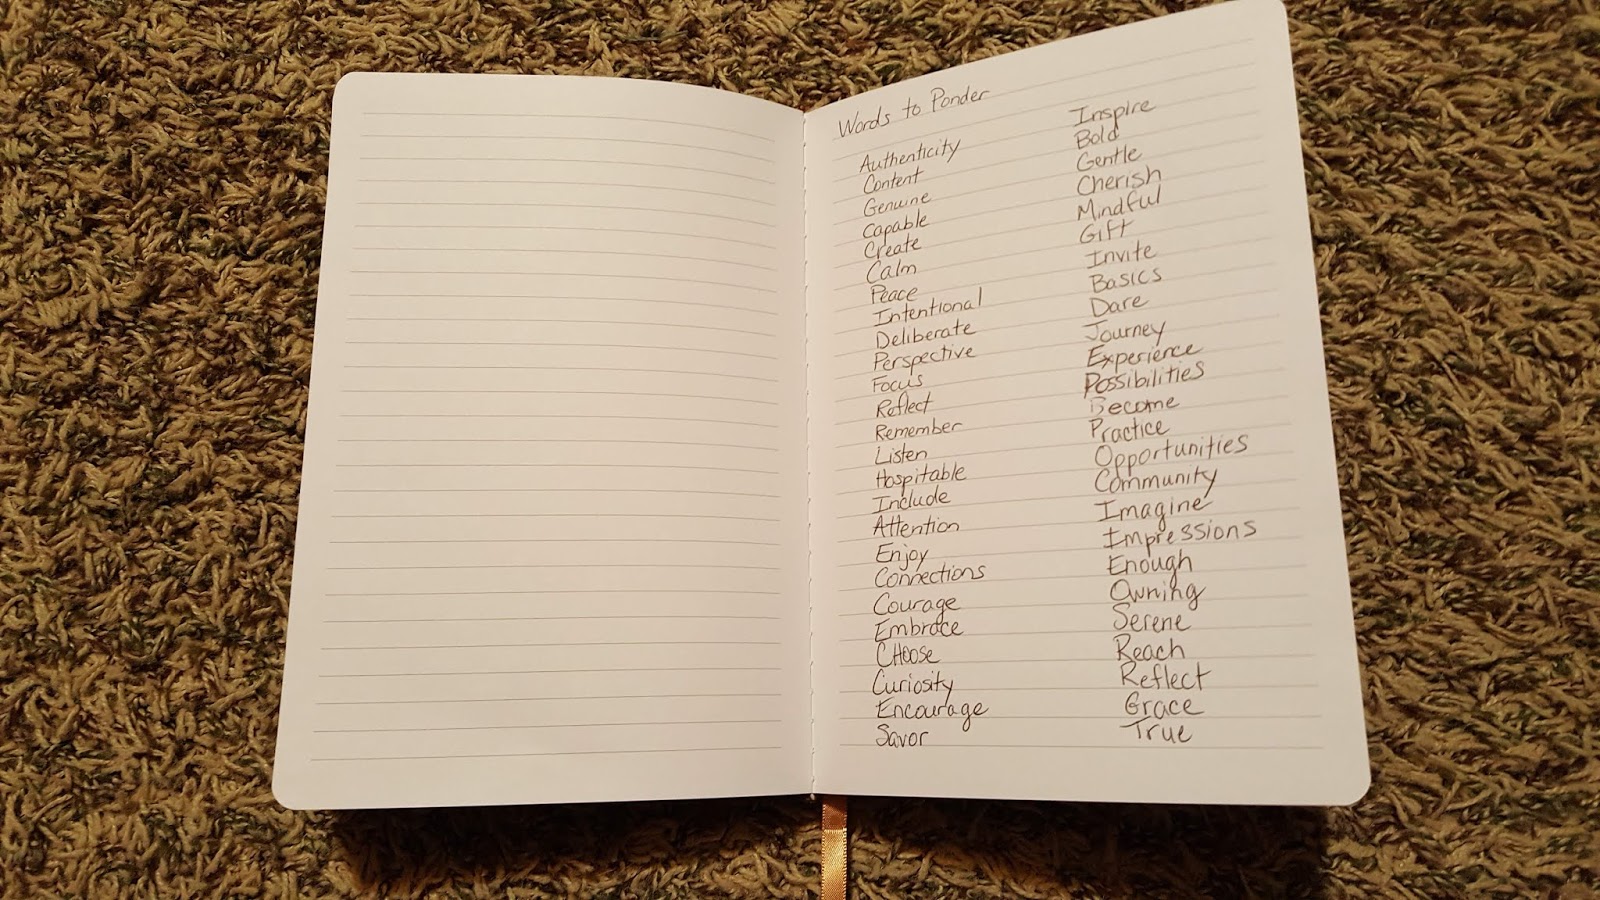 Words to Ponder
Authenticity
Content
Genuine
Capable
Create
Calm
Peace
Intentional
Deliberate
Perspective
Focus
Reflect
Remember
Listen
Hospitable
Include
Attention
Enjoy
Connections
Courage
Embrace
CHoose
Curiosity
Encourage
Savor
Inspire
Bold
Gentle
Cherish
Mindful
Gift
Invite
Basics
Dare
Journey
Experience
Possibilities
Become
Practice
Opportunities
Community
Imagine
Impressions
Enough
Owning
Serene
Reach
Reflect
Grace
True